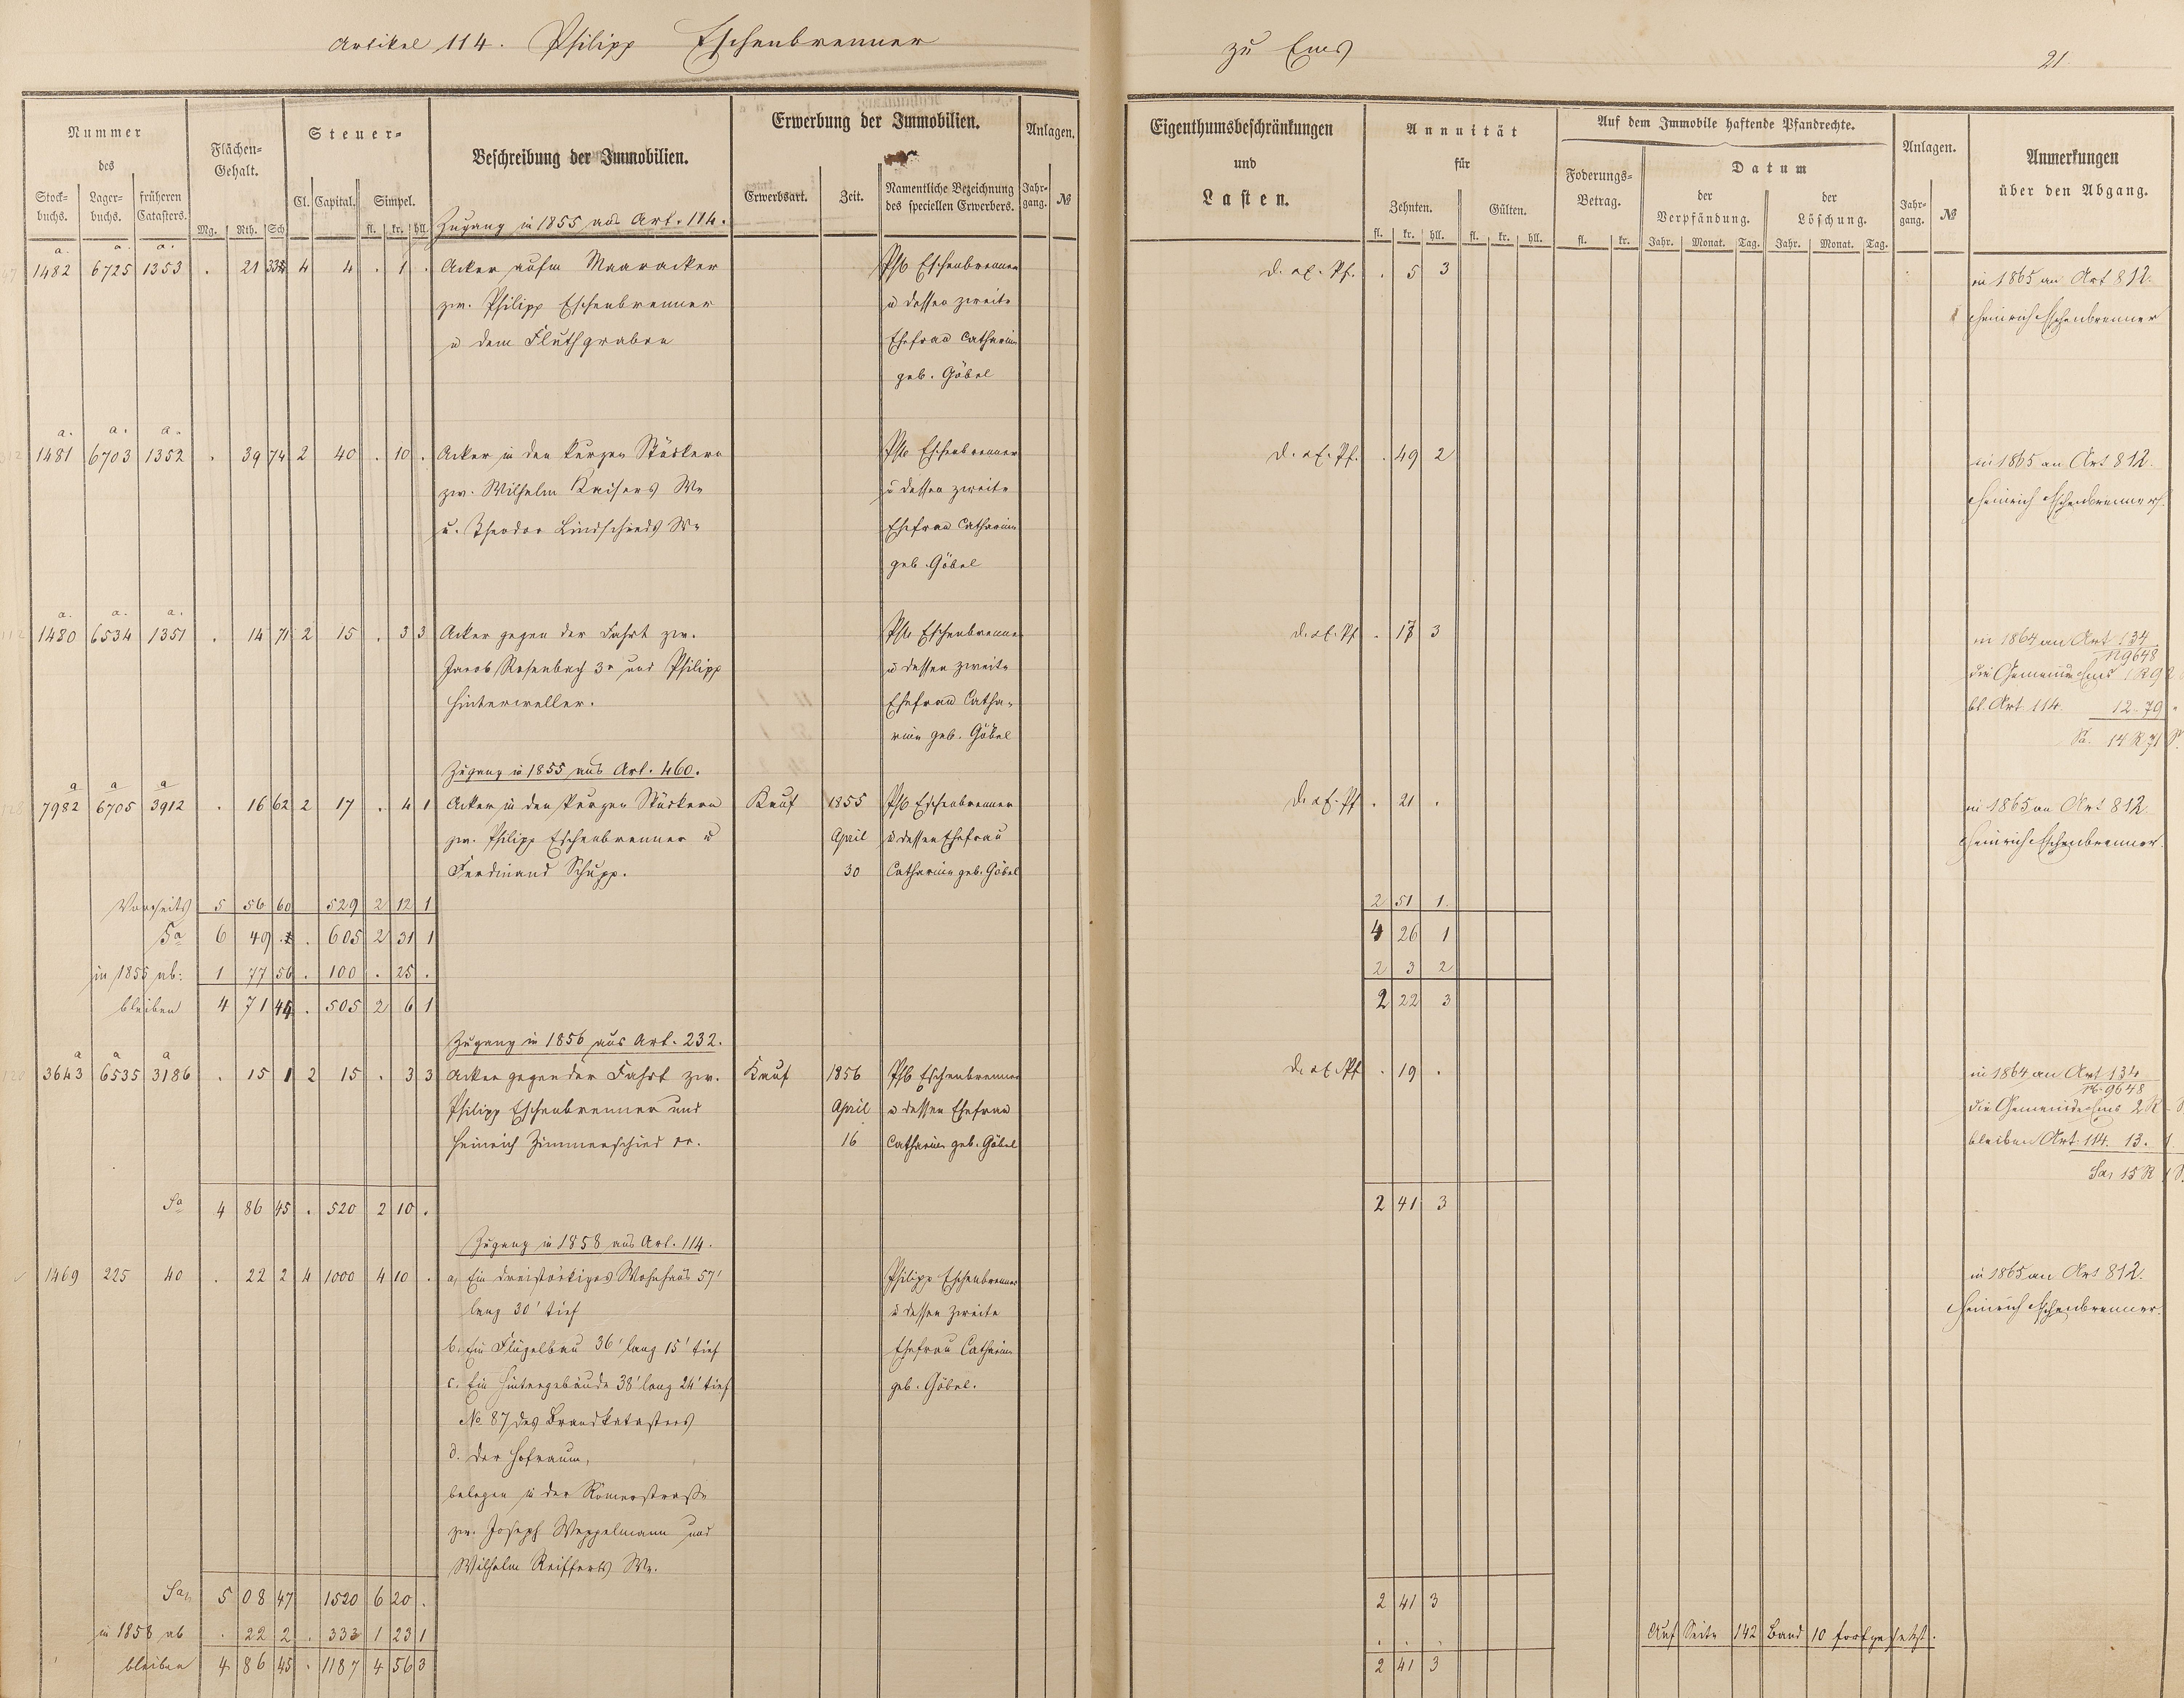 Artikel 114. Philipp Eschenbrenner zu Ems 21
Nummer des Flächen-Gehalt. Steuer- Beschreibung der Immobilien. Erwerbung der Immobilien. Anlagen. Eigenthumsbeschränkungen und Lasten. Annuität für Auf dem Immobile haftende Pfandrechte. Anlagen. Anmerkungen über den Abgang.
Stock-buchs. Lager-buchs. früheren Catasters. Cl. Capital. Simpel. Erwerbsart. Zeit. Namentliche Bezeichnung des speciellen Erwerbers. Jahr-gang. № Zehnten. Gülten. Foderungs-Betrag. Datum der Verpfändung. der Löschung. Jahr-gang. №
Mg. Rth. Sch. fl. kr. hll. fl. kr. hll. fl. kr. hll. fl. kr. Jahr. Monat. Tag. Jahr. Monat. Tag.
Zugang in 1855 aus Art. 114.
a. a. a.
1482 6725 1353 . 21 33 4 4 . 1 . Acker aufm Maaracker Phb Eschenbrenner d. ae. Pf. . 5 3 in 1865 an Art 812.
zw. Philipp Eschenbrenner u dessen zweite Heinrich Eschenbrenner
u dem Fluthgraben Ehefrau Catharine
geb. Göbel
a. a. a.
1481 6703 1352 . 39 74 2 40 . 10 . Acker in den kurzen Stückern Phb Eschenbrenner d. ae. Pf. . 49 2 in 1865 an Art 812.
zw. Wilhelm Kaisers We u dessen zweite Heinrich Eschenbrenner
u. Theodor Lindscheids We Ehefrau Catharine
geb. Göbel
a. a. a.
1480 6534 1351 . 14 71 2 15 . 3 3 Acker gegen der Fahrt zw. Phb Eschenbrenner d. ae. Pf . 17 3 in 1864 an Art 134
№ 9648
Jacob Rosenbach 3r und Philipp u dessen zweite die Gemeinde Ems 1 R 92
Hinterweller. Ehefrau Catha- bl. Art 114. 12 . 79
rine geb. Göbel Sa. 14 R 71 S.
Zugang in 1855 aus Art. 460.
a a a
7982 6705 3912 . 16 62 2 17 . 4 1 Acker in den kurzen Stückern Kauf 1855 Phb Eschenbrenner d. ae. Pf . 21 . in 1865 an Art 812
zw. Philipp Eschenbrenner u April u dessen Ehefrau Heinrich Eschenbrenner.
Ferdinand Schupp. 30 Catharine geb. Göbel
Vorseits 5 56 60 529 2 12 1 2 51 1.
Sa 6 49 . . 605 2 31 1 4 26 1
in 1855 ab: 1 77 56 . 100 . 25 . 2 3 2
bleiben 4 71 44 . 505 2 6 1 2 22 3
Zugang in 1856 aus Art. 232.
a a a
3643 6535 3186 . 15 1 2 15 . 3 3 Acker gegen der Fahrt zw. Kauf 1856 Phb Eschenbrenner d. ae. Pf . 19 . in 1864 an Art 134
№ 9648
Philipp Eschenbrenner und April u dessen Ehefrau die Gemeinde Ems 2 R
Heinrich Zimmerschied 16 Catharine geb. Göbel bleiben Art. 114. 13. 1
Sa, 15 R 1 S.
Sa 4 86 45 . 520 2 10 . 2 41 3
Zugang in 1858 aus Art. 114.
1469 225 40 . 22 2 4 1000 4 10 . a, Ein dreistöckiges Wohnhaus 57' Philipp Eschenbrenner in 1865 an Art 812.
lang 30' tief u dessen zweite Heinrich Eschenbrenner.
b. Ein Flügelbau 36' lang 15' tief Ehefrau Catharine
c. Ein Hintergebäude 38' lang 24' tief geb. Göbel.
№ 87 des Brandkatasters
d. der Hofraum,
belegen in der Römerstraße
zw. Joseph Weppelmann und
Wilhelm Reifferts We.
Sa, 5 08 47 1520 6 20 . 2 41 3
in 1858 ab . 22 2 . 333 1 23 1 . . . Auf Seite 142 Band 10 fortgesetzt.
bleiben 4 86 45 . 1187 4 56 3 2 41 3